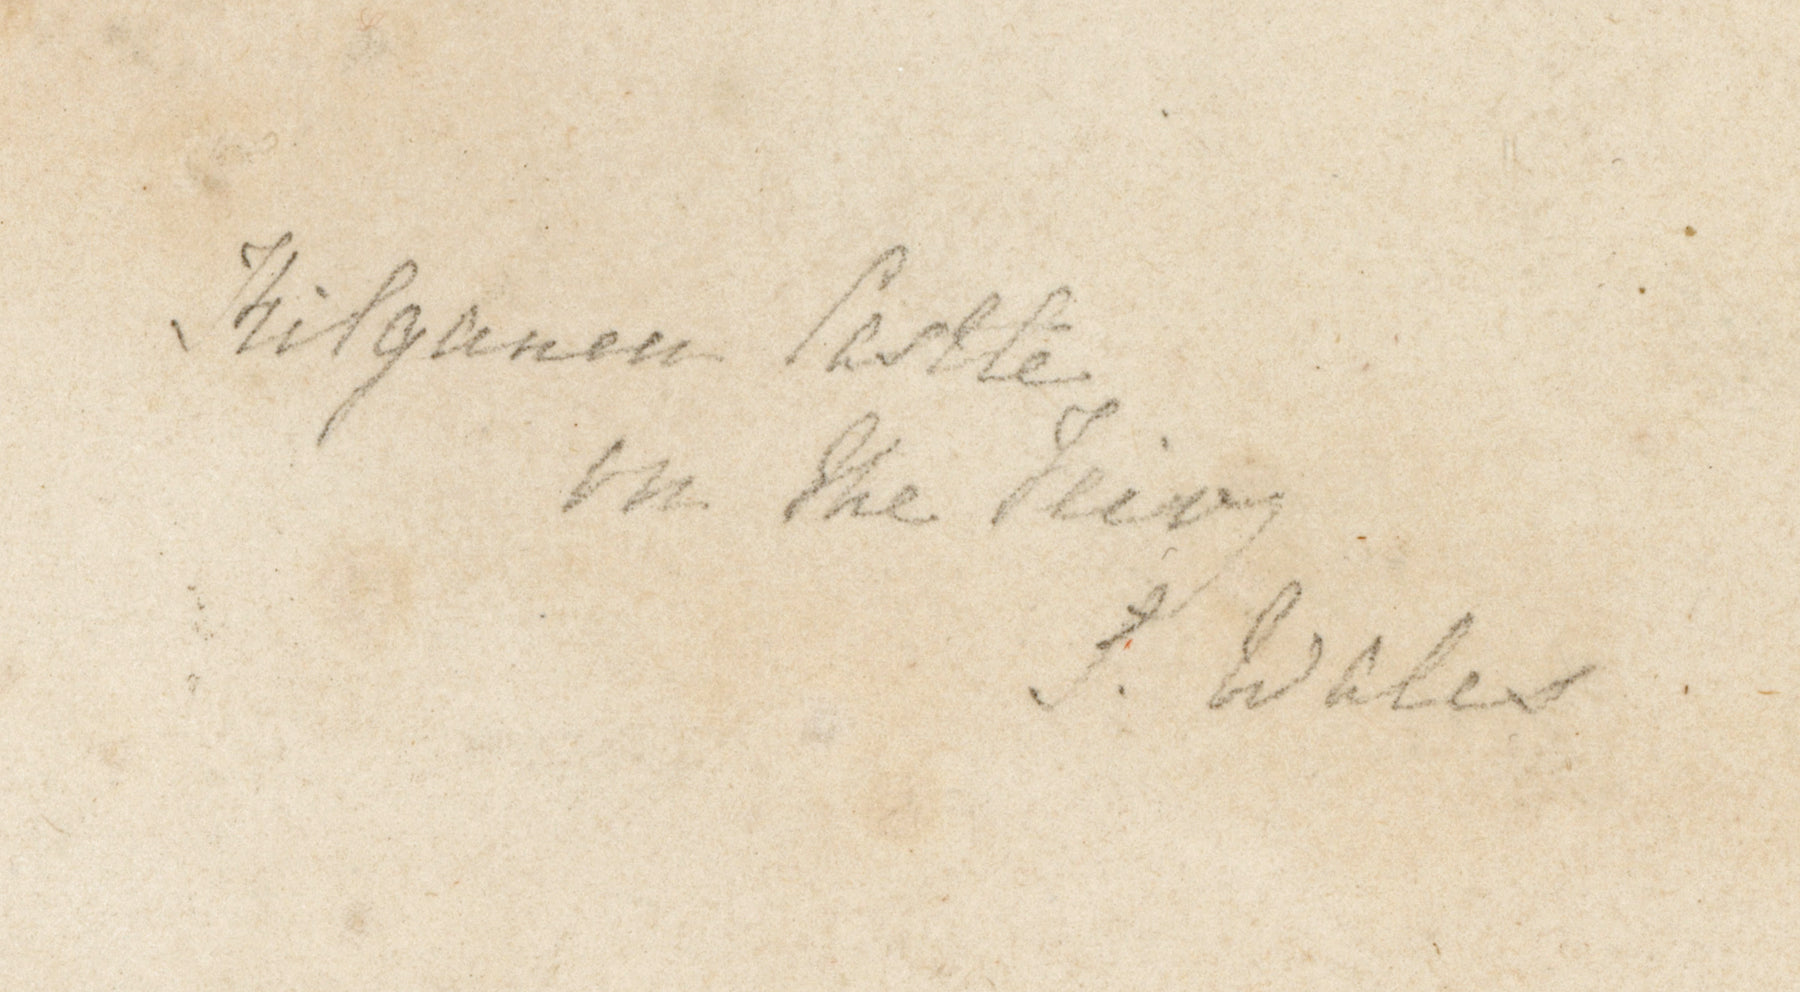 Kilgunen Castle
on the Teivy
S. Wales